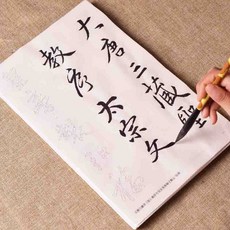 大唐三藏聖
教序太宗文